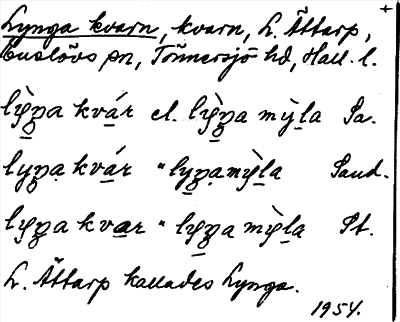 +
Lynga kvarn, kvarn, L. Ättarp,
Enslövs sn, Tönnersjö hd, Hall. l.
lỳŋa kvár el. lỳŋa mỳla Sa.
lyŋa kvár " lyŋa mỳla Saud.
lỳŋa kvar " lỳŋa mỳla St.
L. Ättarp kallades Lynga.
1954.